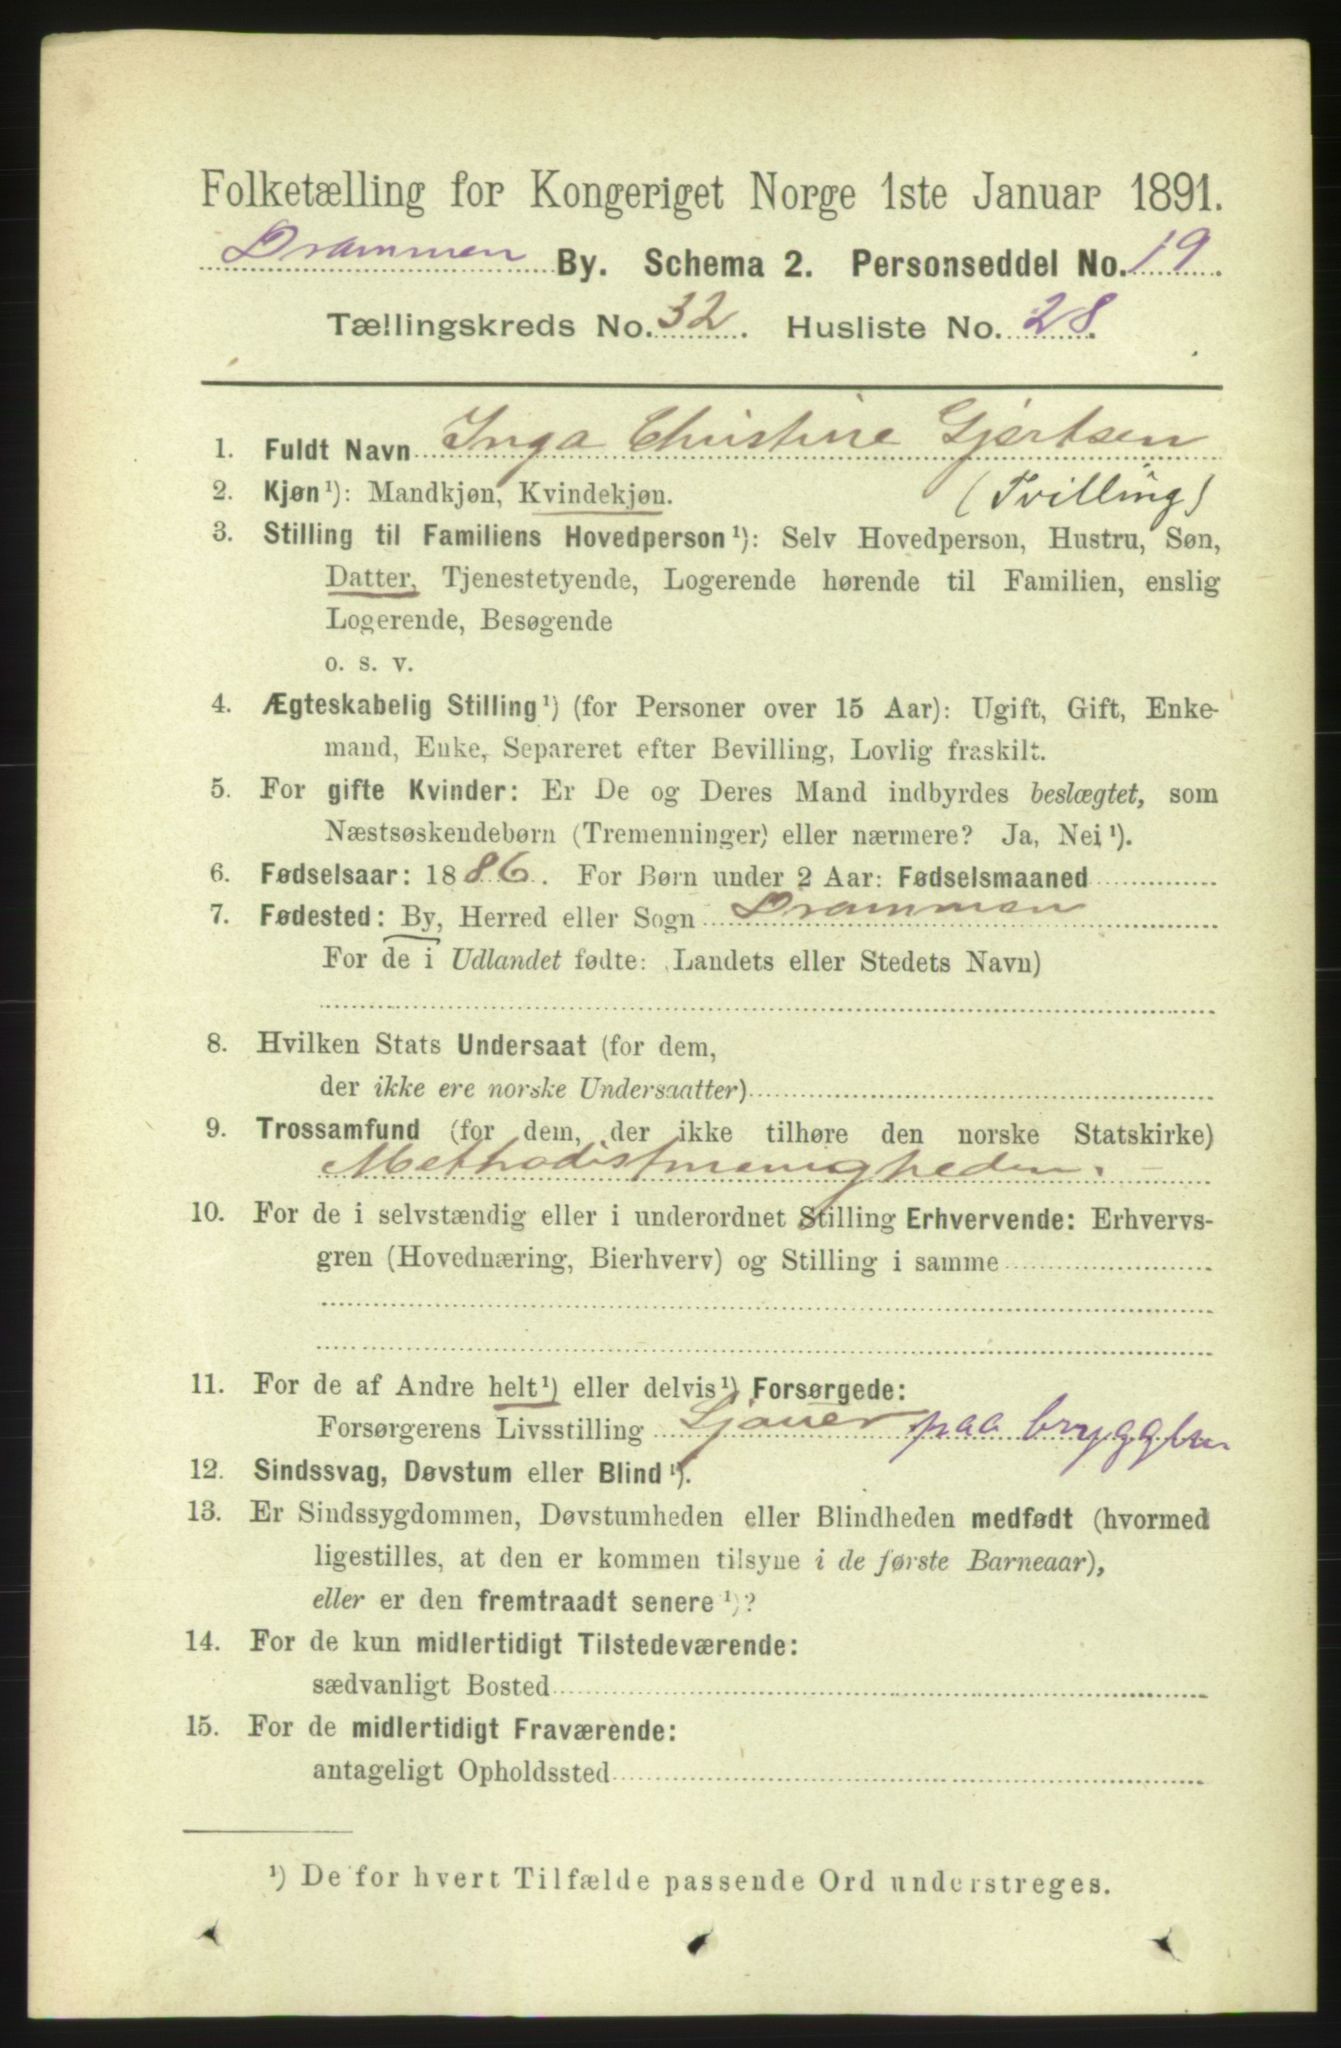 Folketælling for Kongeriget Norge 1ste Januar 1891.
Drammen By. Schema 2. Personseddel No. 19
Tællingskreds No. 32. Husliste No. 28.
1. Fuldt Navn Inga Christine Gjertsen
2. Kjøn¹): Mandkjøn, Kvindekjøn. (Tvilling)
3. Stilling til Familiens Hovedperson¹): Selv Hovedperson, Hustru, Søn,
Datter, Tjenestetyende, Logerende hørende til Familien, enslig
Logerende, Besøgende
o. s. v.
4. Ægteskabelig Stilling¹) (for Personer over 15 Aar): Ugift, Gift, Enke-
mand, Enke, Separeret efter Bevilling, Lovlig fraskilt.
5. For gifte Kvinder: Er De og Deres Mand indbyrdes beslægtet, som
Næstsøskendebørn (Tremenninger) eller nærmere? Ja, Nei¹).
6. Fødselsaar: 1886. For Børn under 2 Aar: Fødselsmaaned
7. Fødested: By, Herred eller Sogn Drammen
For de i Udlandet fødte: Landets eller Stedets Navn)
8. Hvilken Stats Undersaat (for dem,
der ikke ere norske Undersaatter)
9. Trossamfund (for dem, der ikke tilhøre den norske Statskirke)
Methodistmenigheden.
10. For de i selvstændig eller i underordnet Stilling Erhvervende: Erhvervs-
gren (Hovednæring, Bierhverv) og Stilling i samme
11. For de af Andre helt¹) eller delvis¹) Forsørgede:
Forsørgerens Livsstilling Sjauer paa bryggen
12. Sindssvag, Døvstum eller Blind¹).
13. Er Sindssygdommen, Døvstumheden eller Blindheden medfødt (hvormed
ligestilles, at den er kommen tilsyne i de første Barneaar),
eller er den fremtraadt senere¹)?
14. For de kun midlertidigt Tilstedeværende:
sædvanligt Bosted
15. For de midlertidigt Fraværende:
antageligt Opholdssted
¹) De for hvert Tilfælde passende Ord understreges.